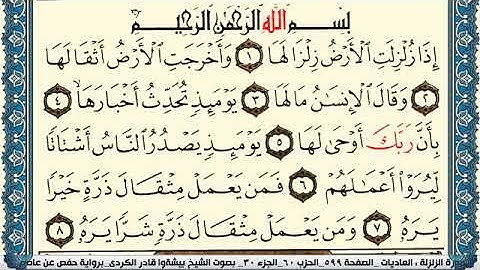 بِسْمِ اللَّهِ الرَّحْمَٰنِ الرَّحِيمِ
إِذَا زُلْزِلَتِ الْأَرْضُ زِلْزَالَهَا ١ وَأَخْرَجَتِ الْأَرْضُ أَثْقَالَهَا
٢ وَقَالَ الْإِنسَٰنُ مَا لَهَا ٣ يَوْمَئِذٍ تُحَدِّثُ أَخْبَارَهَا ٤
بِأَنَّ رَبَّكَ أَوْحَىٰ لَهَا ٥ يَوْمَئِذٍ يَصْدُرُ النَّاسُ أَشْتَاتًا
لِّيُرَوْا أَعْمَٰلَهُمْ ٦ فَمَن يَعْمَلْ مِثْقَالَ ذَرَّةٍ خَيْرًا
يَرَهُ ٧ وَمَن يَعْمَلْ مِثْقَالَ ذَرَّةٍ شَرًّا يَرَهُ ٨
الزلزلة ، العاديات _ الصفحة ٥٩٩_ الحزب ٦٠_ الجزء ٣٠ _ بصوت الشيخ بيشةوا قادر الكردي_ برواية حفص عن